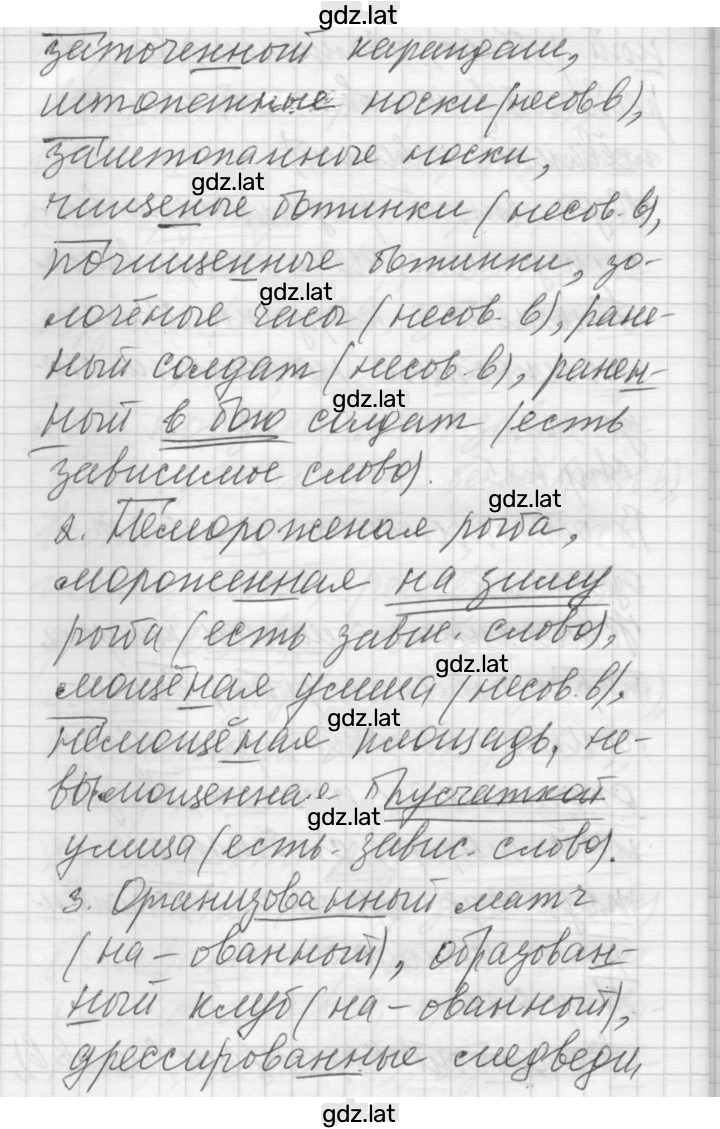 gdz.lat
заточенный карандаш,
штопаные носки (несов в),
заштопанные носки,
gdz.lat
чищеные ботинки (несов. в),
почищенные ботинки, зо-
gdz.lat
лочёные часы (несов. в), ране-
ный солдат (несов. в), ранен-
gdz.lat
ный в бою солдат (есть
зависимое слово).
gdz.lat
2. Немороженая рыба,
мороженная на зиму
рыба (есть завис. слово),
gdz.lat
мощёная улица (несов. в),
gdz.lat
немощёная площадь, не-
вымощенная брусчаткой
gdz.lat
улица (есть завис. слово).
3. Организованный матч
(на -ованный), образован-
ный клуб (на -ованный),
дрессированные медведи,
gdz.lat